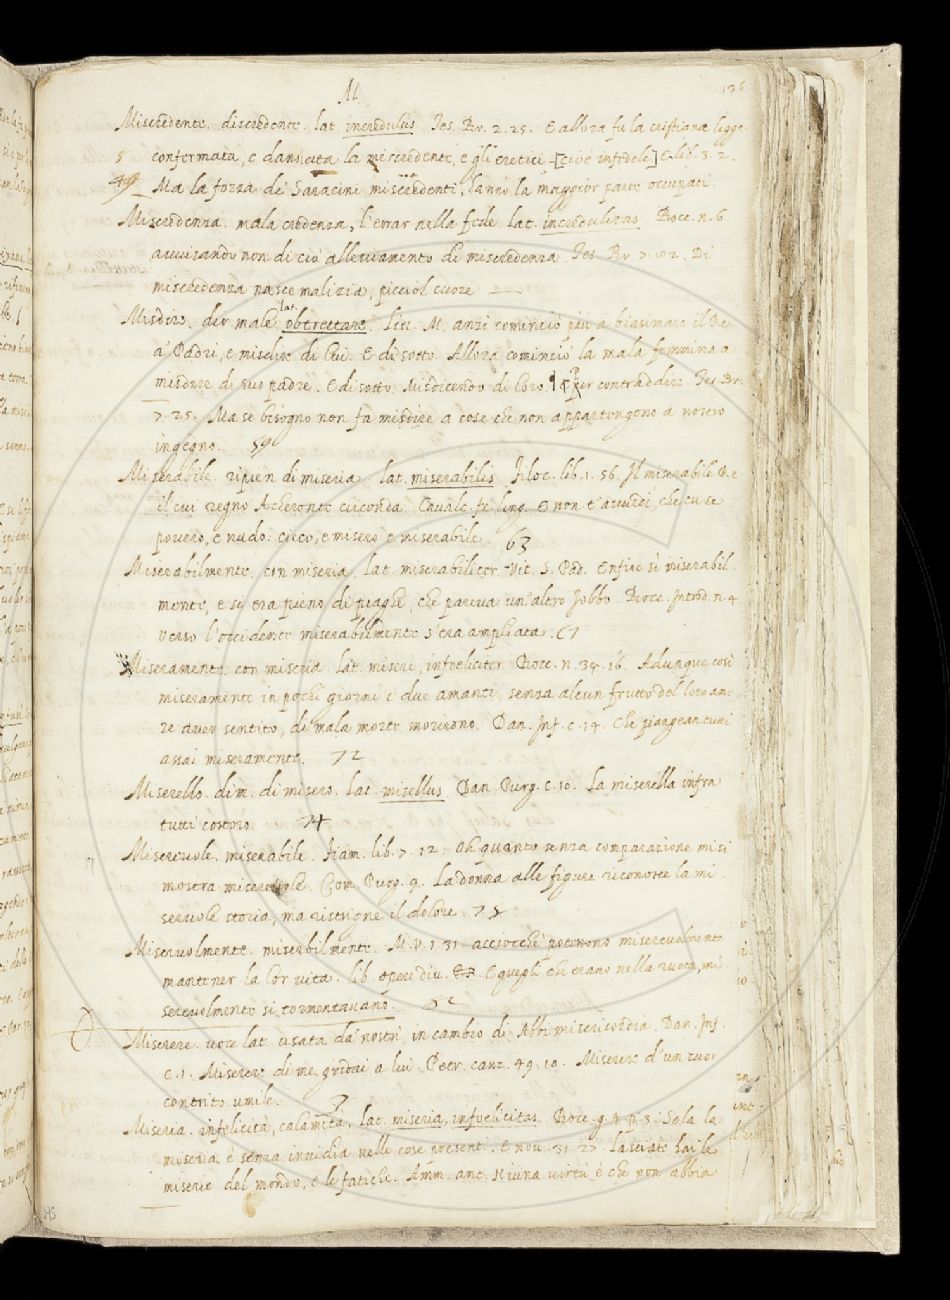 M
136
Miscredente. discredente. lat. incredulus. Tes. Br. 2. 25. E allora fu la cristiana legge
5 confermata, e dannata la miscredente, e gli eretici [cioè infedele] E lib. 3. 2.
49 Ma la forza de' Saracini miscredenti, l'anno la maggior parte occupati.
Miscredenza. mala credenza, l'errar nella fede. lat. incredulitas. Bocc. n. 6.
avvisando non di ciò alleviamento di miscredenza. Tes. Br. 7. 82. Di
miscredenza nasce malizia, picciol cuore
Misdire. dir male. lat. obtrectare. Liv. M. anzi cominciò più a biasimare il Re
a' Padri, e misdire di lui. E di sotto. Allora cominciò la mala femmina a
misdire di suo padre. E di sotto. Misdicendo di loro ¶ Per contraddire. Tes. Br.
7. 25. Ma se bisogno non fa misdire a cose che non appartengono a nostro
ingegno. 59
Miserabile. ripien di miseria. lat. miserabilis. Filoc. lib. 1. 56. Il miserabile Re
il cui regno Acheronte circonda. Cavalc. fr. ling. E non t'avvedi, che tu se
povero, e nudo: cieco, e misero e miserabile. 63
Miserabilmente. con miseria. lat. miserabiliter. Vit. S. Pad. Enfiò sì miserabil-
mente, e si era pieno di piaghe, che pareva un'altro Jobbo. Bocc. Introd. n. 4.
verso l'occidente miserabilmente s'era ampliata. 67
Miseramente. con miseria. lat. miserè, infoeliciter. Bocc. n. 34. 16. Adunque così
miseramente in pochi giorni i due amanti, senza alcun frutto del loro amo-
re aver sentito, di mala morte morirono. Dan. Inf. c. 14. Che piangean tutti
assai miseramente. 72
Miserello. dim. di misero. lat. misellus. Dan. Purg. c. 10. La miserella infra
tutti costoro. 74
Miserevole. miserabile. Fiam. lib. 7. 12. Oh quanto senza comparazione mi si
mostra miserevole. Com. Purg. 9. La donna alle figure riconosce la mi-
serevole storia, ma ristrigne il dolore. 75
Miserevolmente. miserabilmente. M. V. 1. 31. acciocchè potessono miserevolmente
mantener la lor vita. lib. opere div. E quegli che erano nella ruota, mi-
serevolmente si tormentavano. 82
Miserere. voce lat. usata da' nostri, in cambio di Abbi misericordia. Dan. Inf.
c. 1. Miserere di me gridai a lui. Petr. canz. 49. 10. Miserere d'un cuor
contrito umile.
Miseria. infelicità, calamità, lat. miseria, infoelicitas. Bocc. g. 4. p. 3. Sola la
miseria è senza invidia nelle cose presenti. E nov. 31. 27. Lasciate hai le
miserie del mondo, e le fatiche. Amm. ant. Niuna virtù è che non abbia